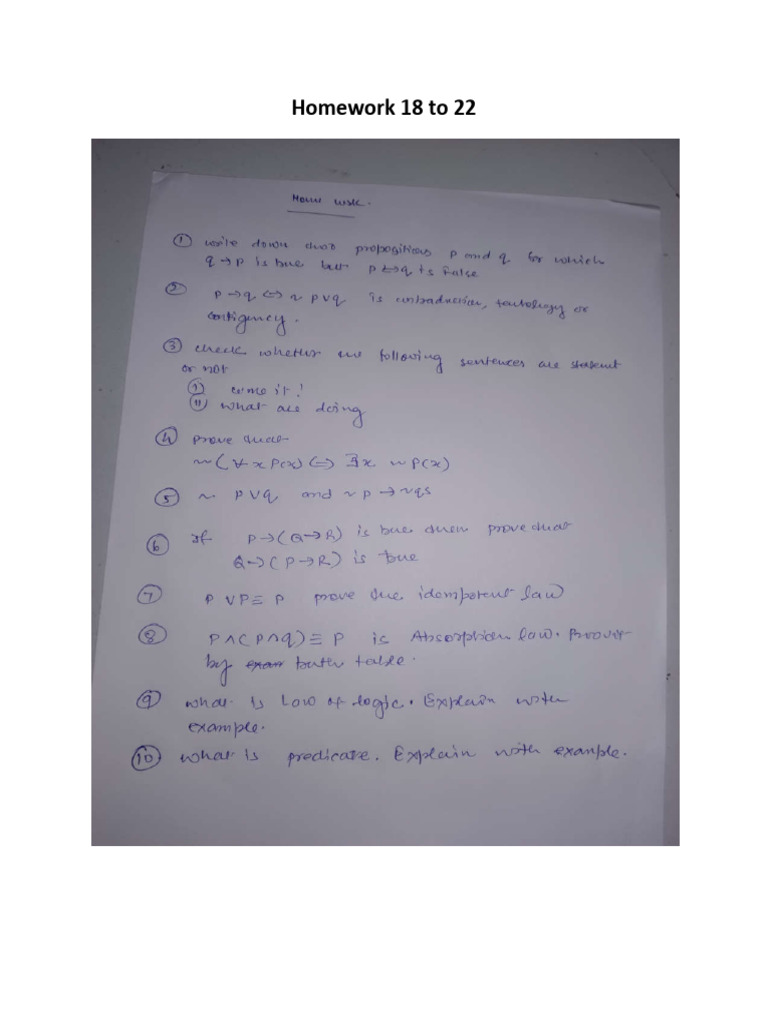 Homework 18 to 22
Home Work.
① write down two propositions p and q for which
q → p is true but p ⇔ q is False
② p → q ⇔ ~ p ∨ q is contradiction, tautology or
contigency.
③ check whether the following sentences are statement
or not
① come it!
② what are doing
④ prove that
~ ( ∀ x P(x) ⇔ ∃x ~ P(x)
⑤ ~ p ∨ q and ~ p → ~ q
⑥ if P → ( Q → R) is true then prove that
Q → ( P → R) is true
⑦ p ∨ p ≡ p prove the idempotent law
⑧ p ∧ ( p ∧ q) ≡ p is Absorption law.
by table.
⑨ what is Law of logic. Explain with
example.
⑩ what is predicate. Explain with example.